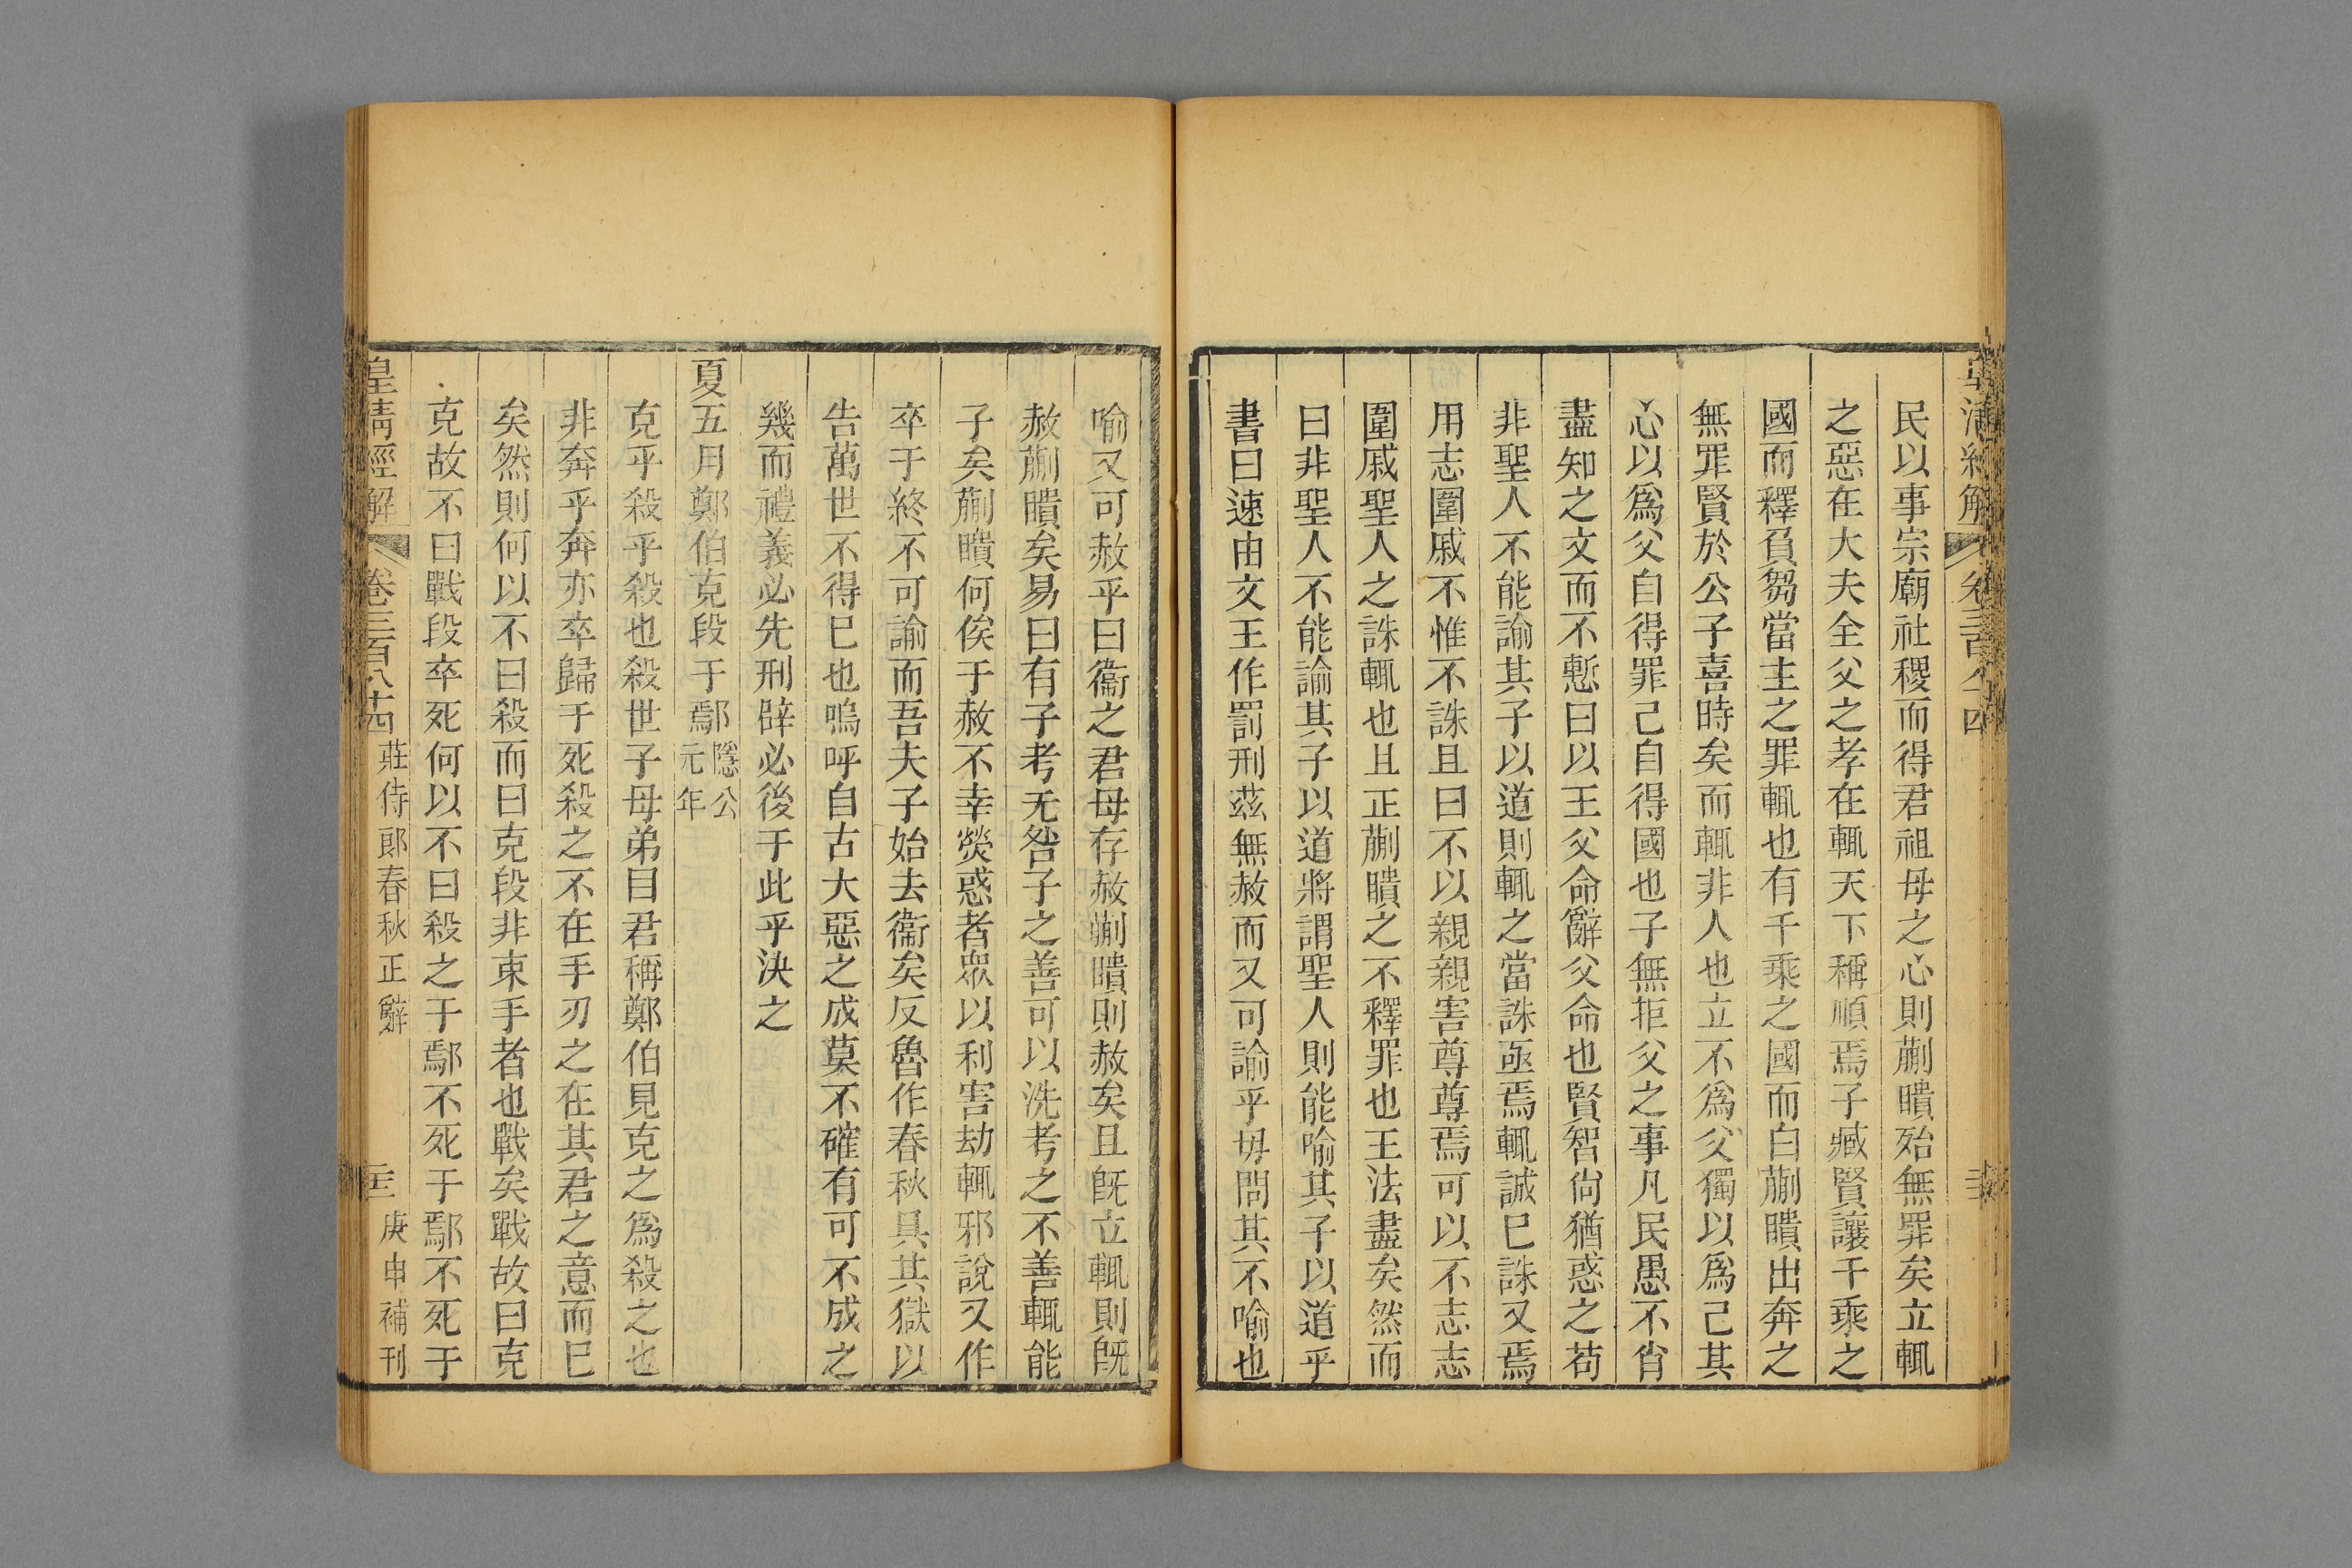 皇清經解 卷三百八十四
民以事宗廟社稷而得君祖母之心則蒯聵殆無罪矣立輒
之惡在大夫全父之孝在輒天下稱順焉子臧賢讓千乘之
國而釋負芻當主之罪輒也有千乘之國而白蒯聵出奔之
無罪賢於公子喜時矣而輒非人也立不爲父獨以爲己其
心以爲父自得罪己自得國也子無拒父之事凡民愚不肖
盡知之文而不慙曰以王父命辭父命也賢智尙猶惑之苟
非聖人不能諭其子以道則輒之當誅亟焉輒誠已誅又焉
用志圍戚不惟不誅且曰不以親親害尊尊焉可以不志志
圍戚聖人之誅輒也且正蒯聵之不釋罪也王法盡矣然而
曰非聖人不能諭其子以道將謂聖人則能喻其子以道乎
書曰速由文王作罰刑茲無赦而又可諭乎毋問其不喻也
喻又可赦乎曰衞之君母存赦蒯聵則赦矣且旣立輒則旣
赦蒯聵矣易曰有子考无咎子之善可以洗考之不善輒能
子矣蒯聵何俟于赦不幸熒惑者衆以利害劫輒邪說又作
卒于終不可諭而吾夫子始去衞矣反魯作春秋具其獄以
告萬世不得已也嗚呼自古大惡之成莫不確有可不成之
幾而禮義必先刑辟必後于此乎決之
夏五月鄭伯克段于鄢 隱公元年
克乎殺乎殺也殺世子母弟目君稱鄭伯見克之爲殺之也
非奔乎奔亦卒歸于死殺之不在手刃之在其君之意而已
矣然則何以不曰殺而曰克段非束手者也戰矣戰故曰克
克故不曰戰段卒死何以不曰殺之于鄢不死于鄢不死于
皇清經解 卷三百八十四 莊侍郎春秋正辭 庚申補刊